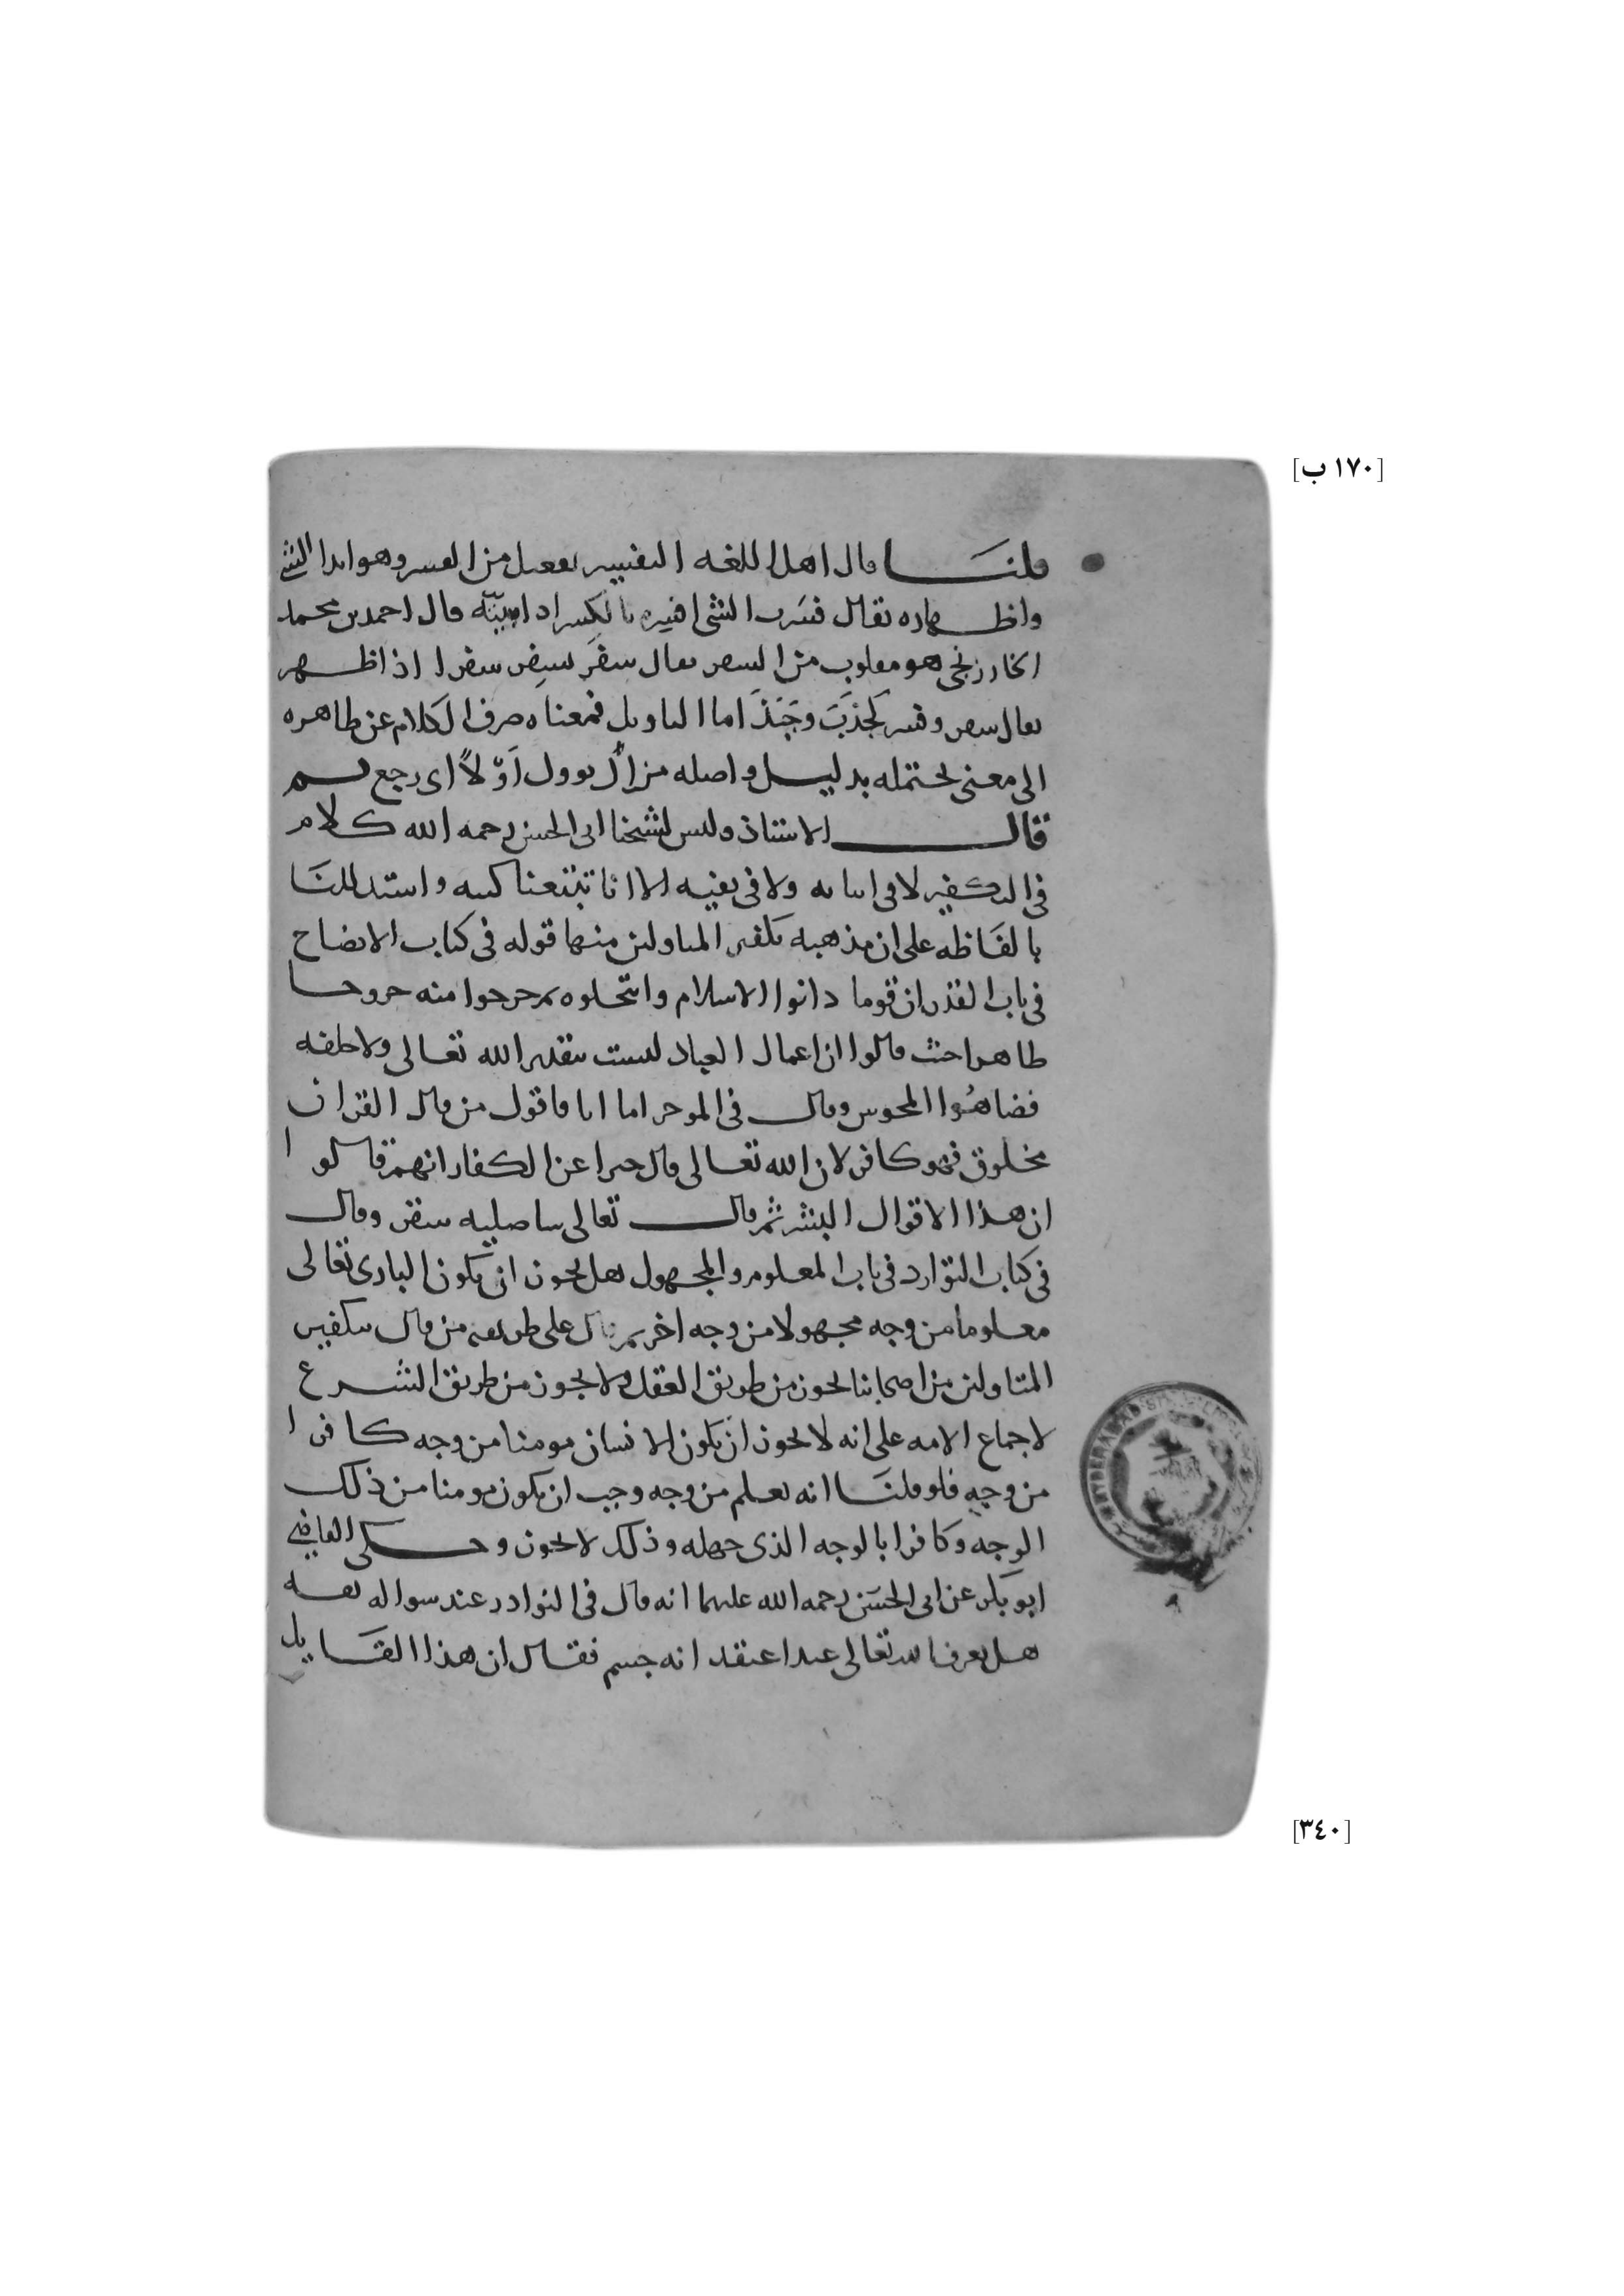 [١٧٠ ب]
قلنا قال اهل اللغه التفسير تفعيل من الفسر وهو ابدا الشي
واظهاره يقال فسرت الشي افسره بالكسر اذا بينته قال احمد بن محمد
الخارزنجي هو مقلوب من السفر يقال سفر يسفر سفرا اذا ظهر
يقال سفر وفسر كجذب وجبذ اما التاويل فمعناه صرف الكلام عن ظاهره
الى معنى يحتمله بدليل واصله من آل يوول اولا اى رجع ثم
قال الاستاذ وليس لشيخنا ابى الحسن رحمه الله كلام
فى التكفير لا فى اثباته ولا فى نفيه الا انا تتبعنا كتبه واستدللنا
بالفاظه على ان مذهبه تكفير المتاولين منها قوله فى كتاب الايضاح
فى باب القدر ان قوما دانوا الاسلام وانتحلوه ثم خرجوا منه خروجا
ظاهرا حيث قالوا ان اعمال العباد ليست بتقدير الله تعالى ولا خلقه
فضاهوا المجوس وقال فى الموجز اما انا فاقول من قال القران
مخلوق فهو كافر لان الله تعالى قال خبرا عن الكفار انهم قالوا
ان هذا الا قول البشر ثم قال تعالى ساصليه سقر وقال
فى كتاب النوادر فى باب المعلوم والمجهول هل يجوز ان يكون البارى تعالى
معلوما من وجه مجهولا من وجه اخر ثم قال على طريقه من قال بتكفير
المتاولين من اصحابنا يجوز من طريق العقل ولا يجوز من طريق الشرع
لاجماع الامه على انه لا يجوز ان يكون الانسان مومنا من وجه كافرا
من وجه فلو قلنا انه يعلم من وجه وجب ان يكون مومنا من ذلك
الوجه وكافرا بالوجه الذى جهله وذلك لا يجوز وحكى القاضي
ابو بكر عن ابى الحسن رحمه الله عليهما انه قال فى النوادر عند سواله نفسه
هل يعرف الله تعالى عبد اعتقد انه جسم فقال ان هذا القايل
[٣٤٠]